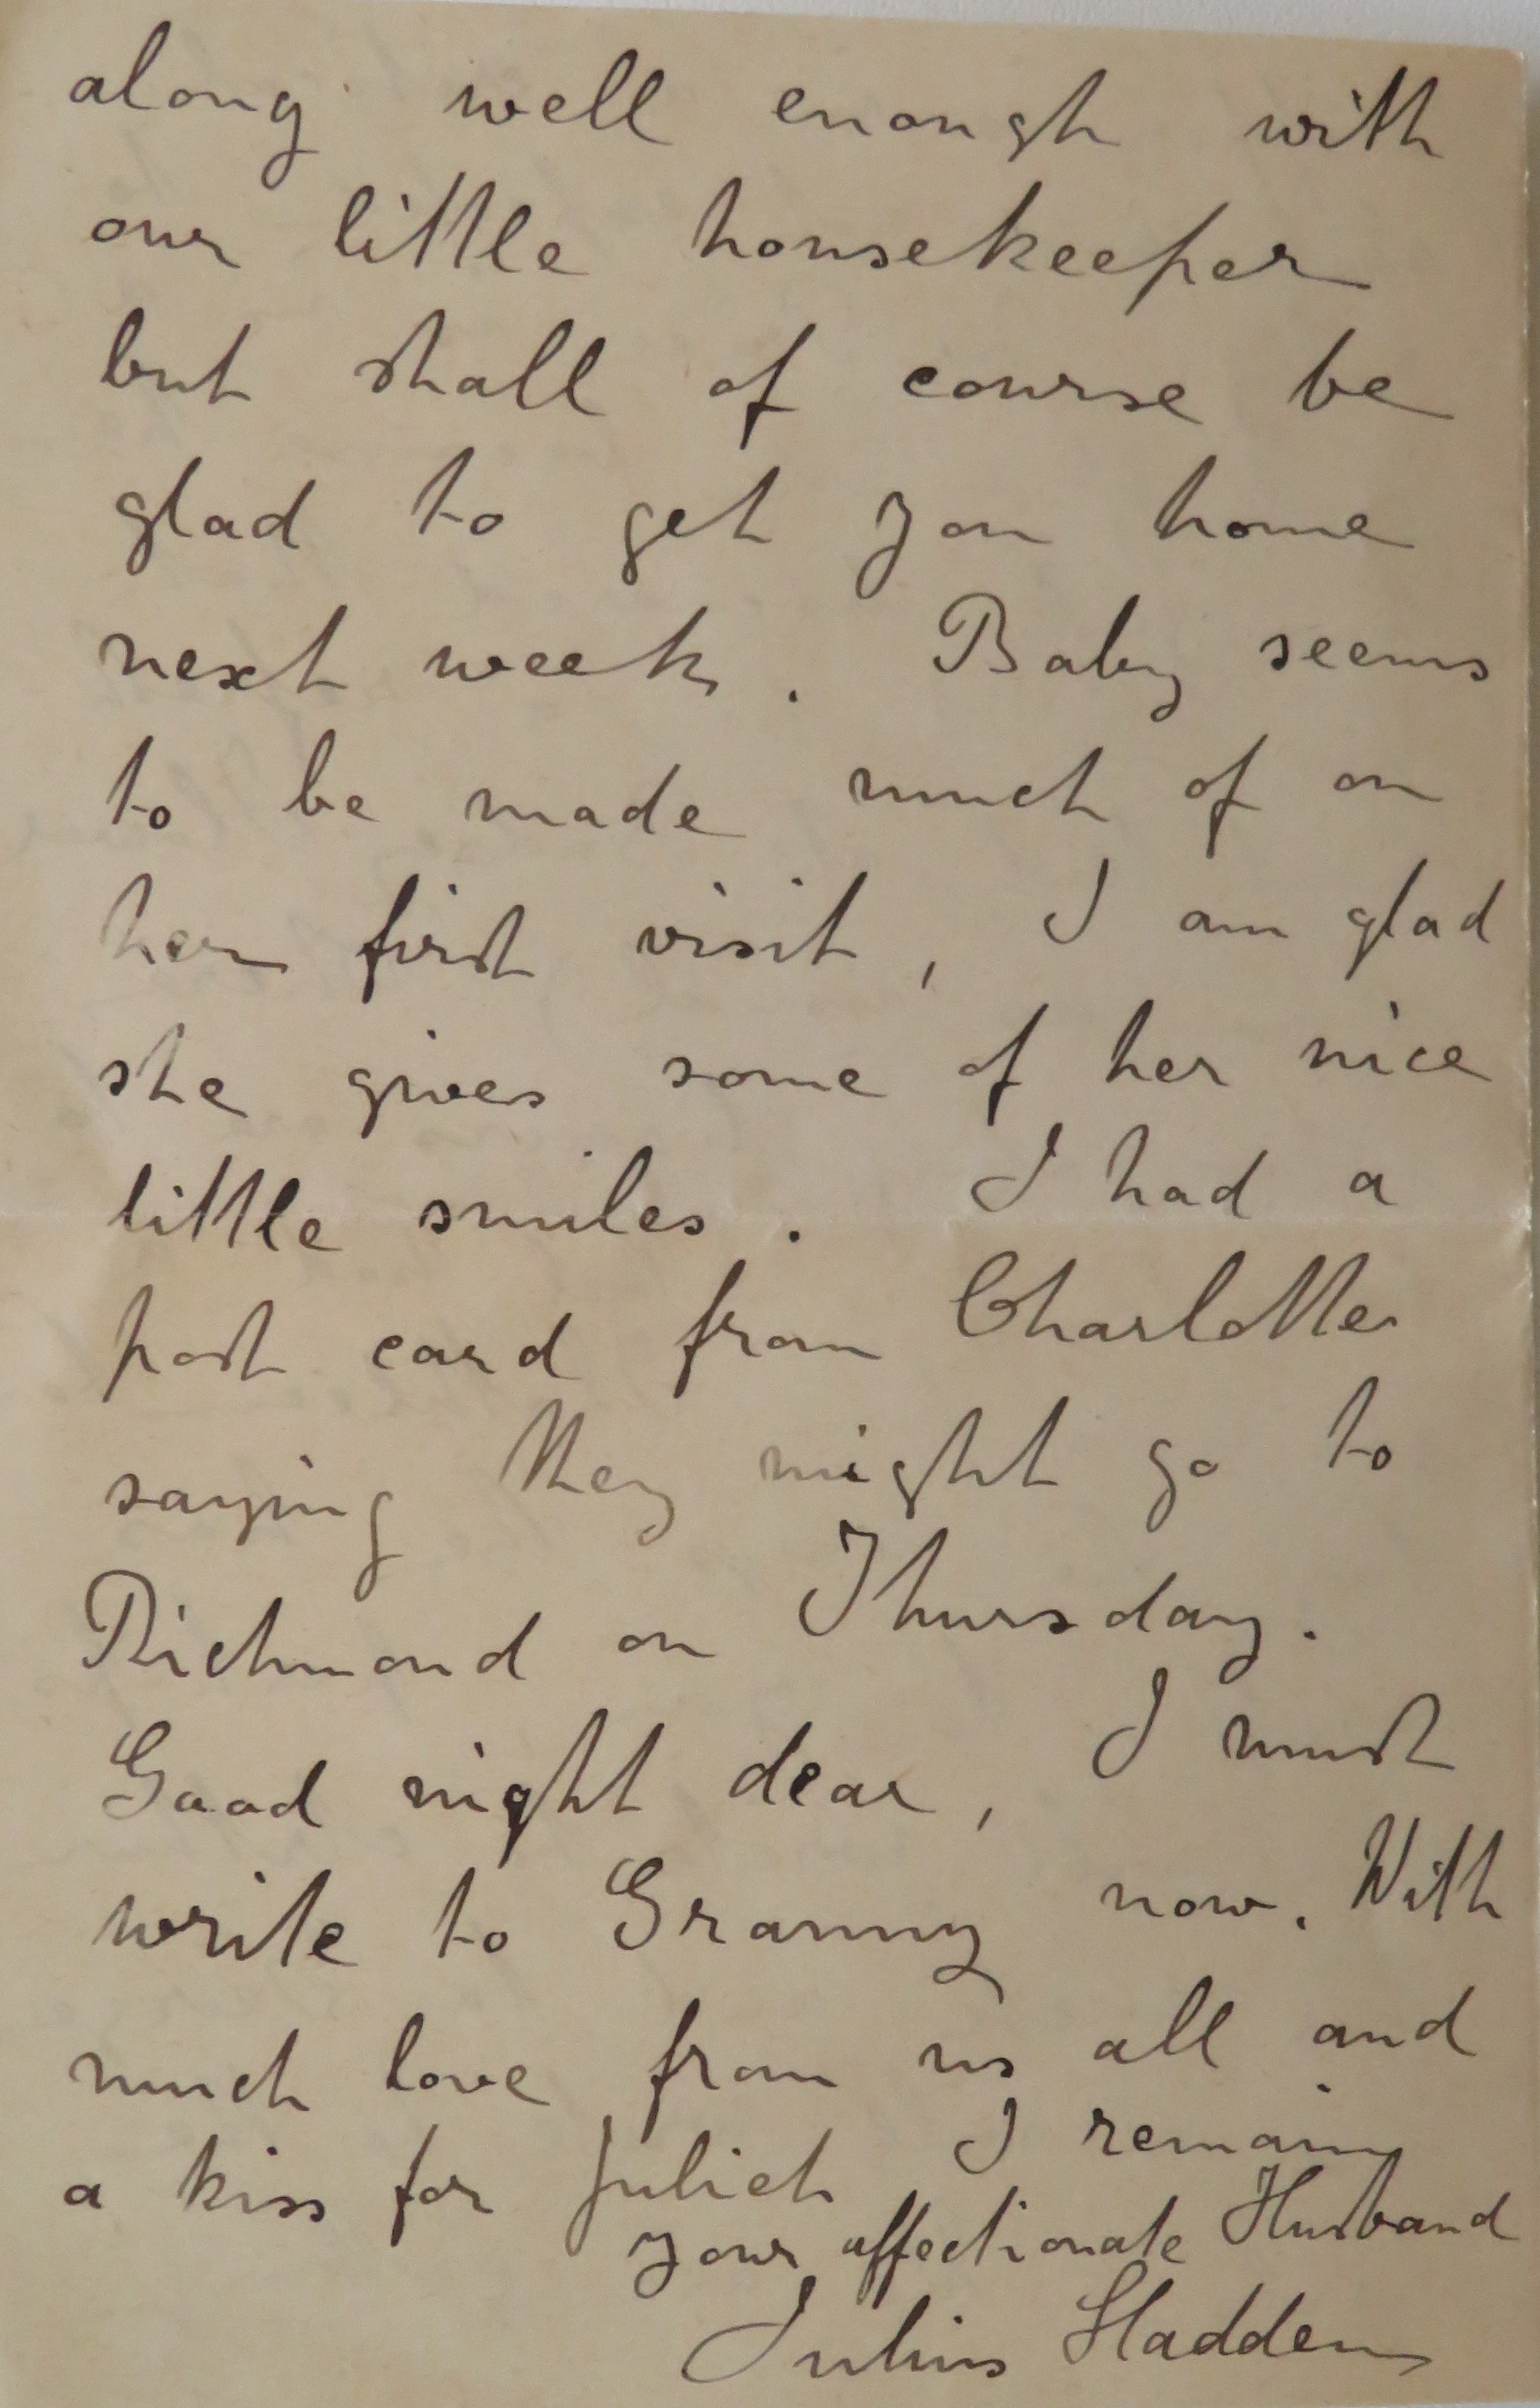 along well enough with
our little housekeeper
but shall of course be
glad to get you home
next week. Baby seems
to be made much of on
her first visit, I am glad
she gives some of her nice
little smiles. I had a
post card from Charlotte
saying they might go to
Richmond on Thursday.
Good night dear, I must
write to Granny now. With
much love from us all and
a kiss for Juliet I remain
your affectionate Husband
Julius Hadden